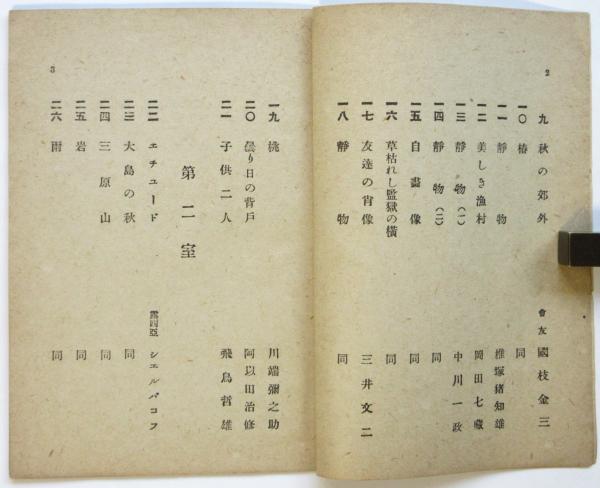 2
九 秋の郊外 會友 國枝金三
一〇 椿 同
一一 靜物 椎塚猪知雄
一二 美しき漁村 岡田七藏
一三 靜物(一) 中川一政
一四 靜物(二) 同
一五 自畫像 同
一六 草枯れし監獄の横 同
一七 友達の肖像 三井文二
一八 靜物 同
3
一九 桃 川端彌之助
二〇 曇り日の背戸 阿以田治修
二一 子供二人 飛鳥哲雄
第二室
二二 エチユード 露西亞 シエルバコフ
二三 大島の秋 同
二四 三原山 同
二五 岩 同
二六 雨 同